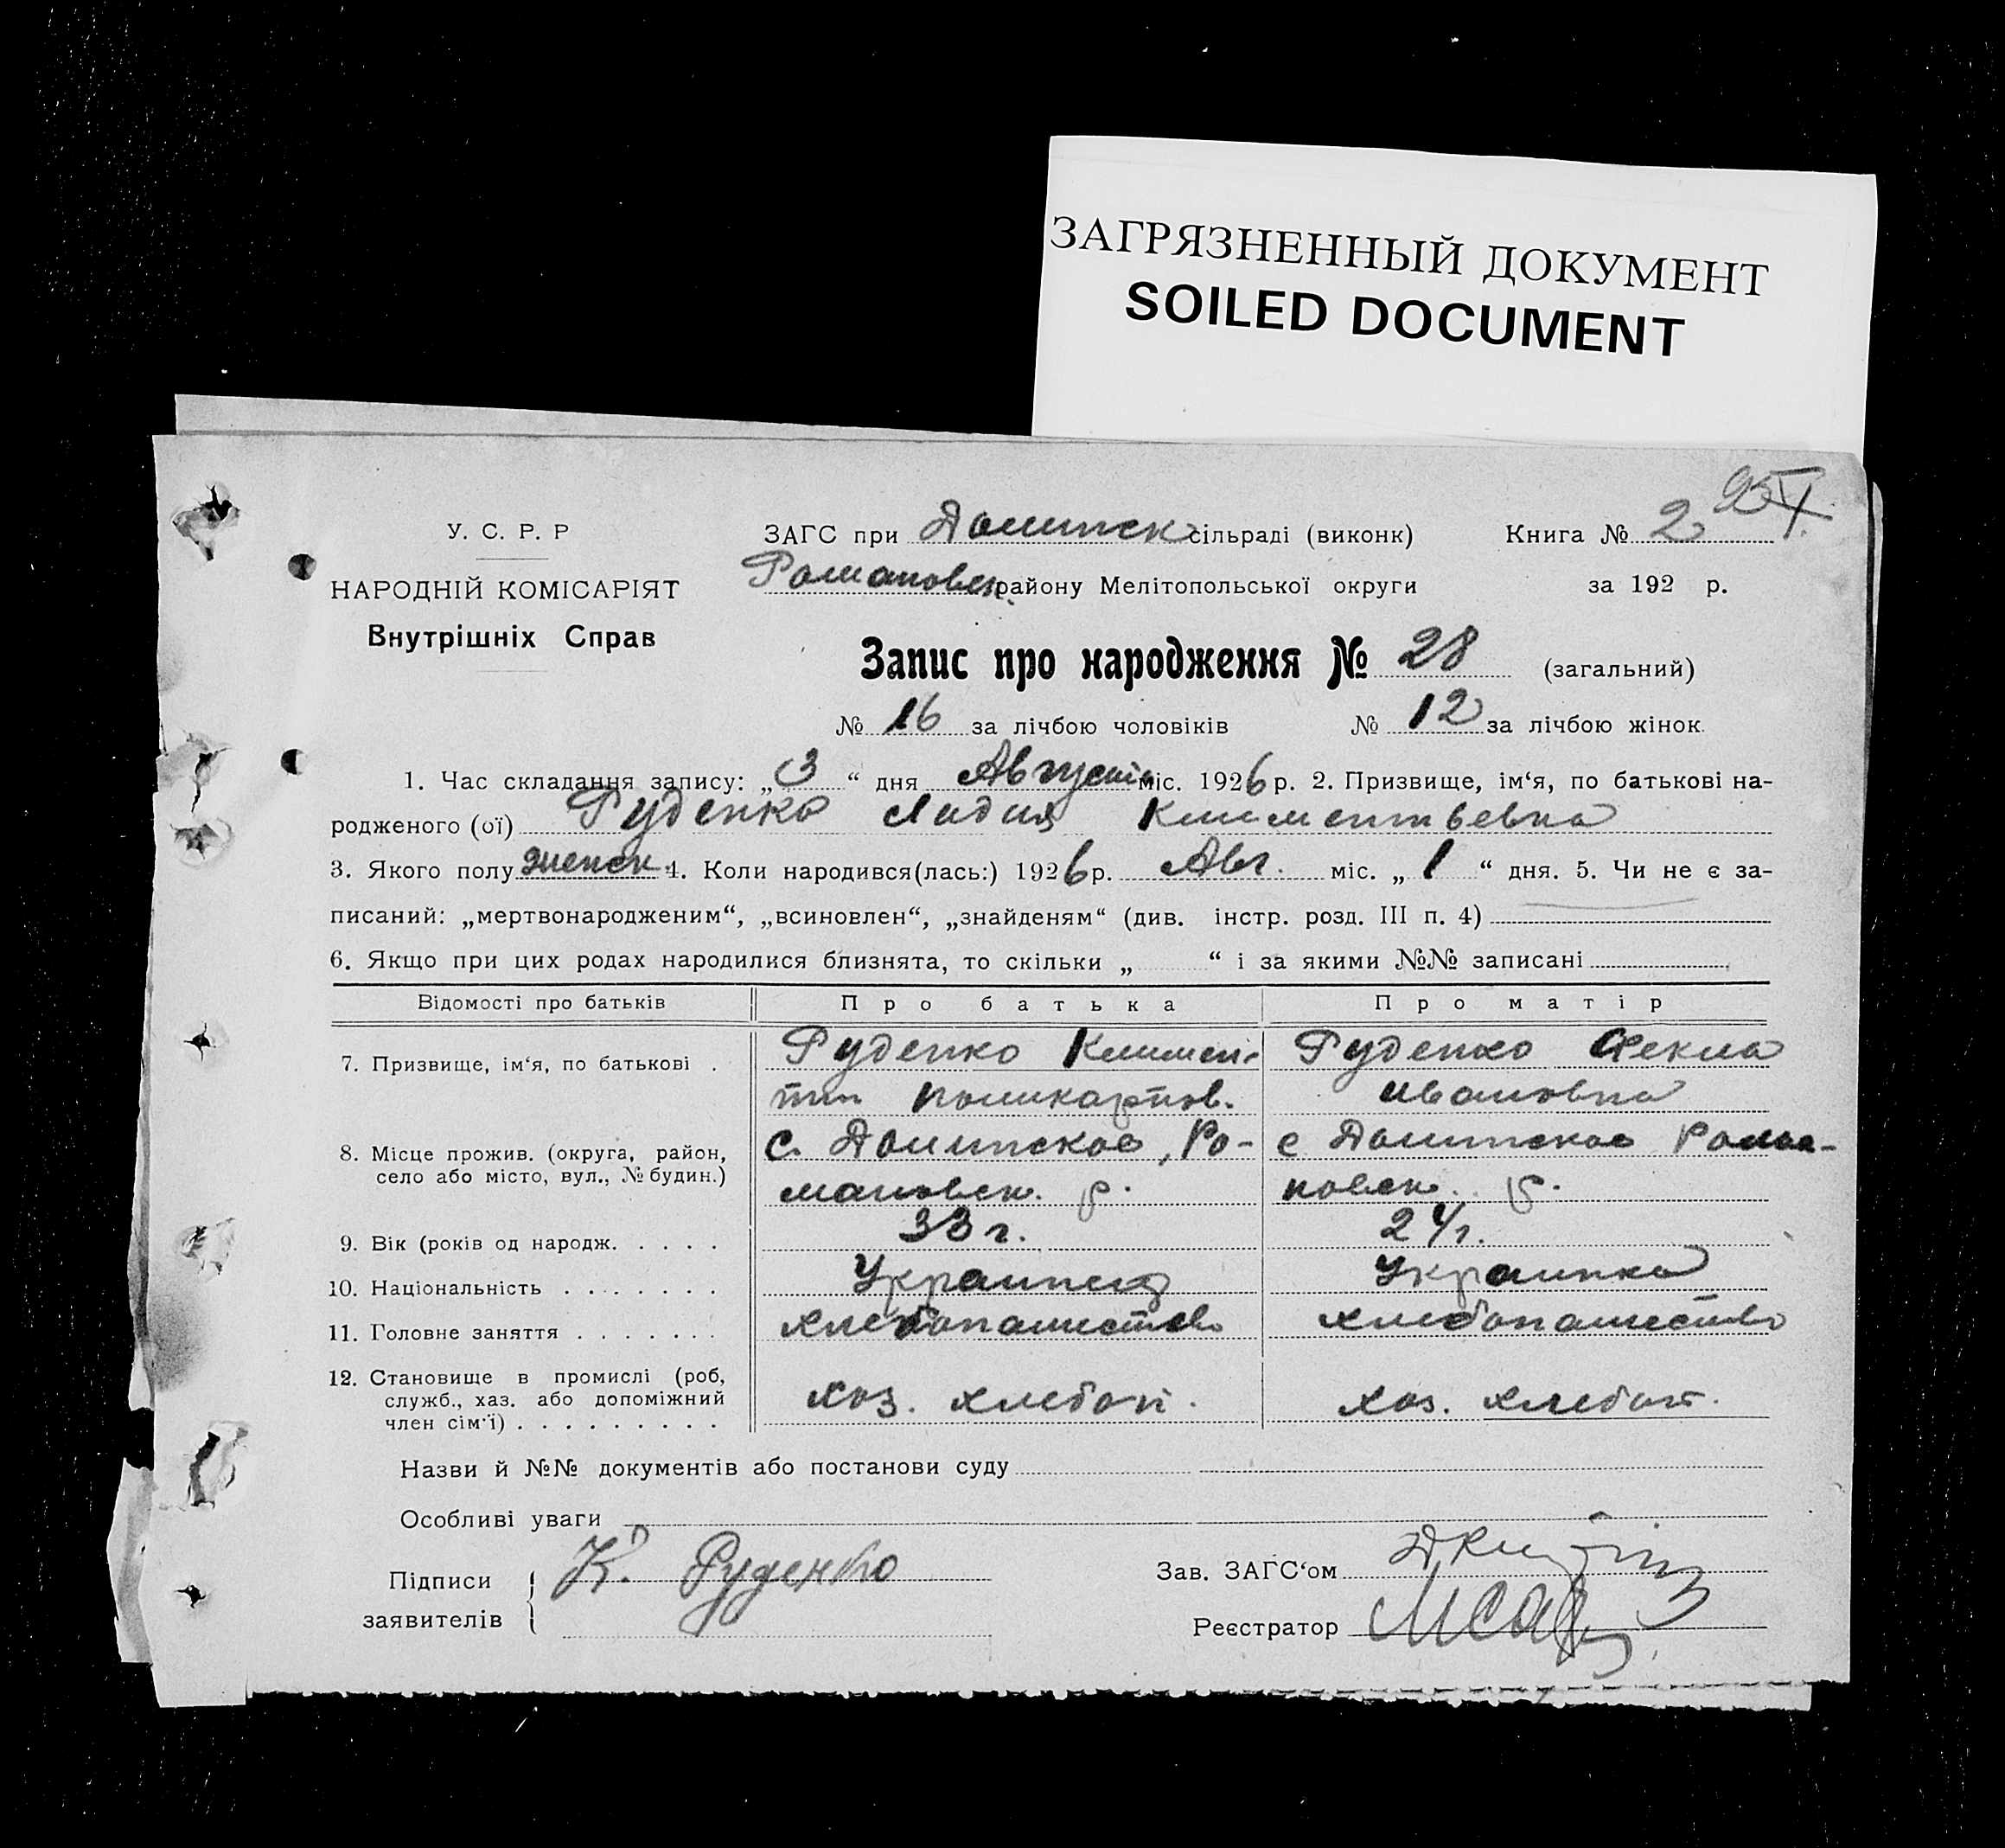 ЗАГРЯЗНЕННЫЙ ДОКУМЕНТ
SOILED DOCUMENT
У. С. Р. Р
НАРОДНІЙ КОМІСАРІЯТ
Внутрішніх Справ
ЗАГС при Домитск сільраді (виконк)
Романовск. району Мелітопольської округи
Книга № 2
за 192 р.
Запис про народження № 28 (загальний)
№ 16 за лічбою чоловіків № 12 за лічбою жінок.
1. Час складання запису: „ 3 “ дня Августа міс. 1926 р. 2. Призвище, ім‘я, по батькові на-
родженого (ої) Руденко Лидия Климентьевна
3. Якого полу женск. 4. Коли народився(лась:) 1926 р. Авг. міс. „ 1 “ дня. 5. Чи не є за-
писаний: „мертвонародженим“, „всиновлен“, „знайденям“ (див. інстр. розд. III п. 4)
6. Якщо при цих родах народилися близнята, то скільки „ “ і за якими №№ записані
Відомості про батьків Про батька Про матір
7. Призвище, ім‘я, по батькові . Руденко Климен- Руденко Фекла
тий Поликарпов. Ивановна
8. Місце прожив. (округа, район, с. Домитское, Ро- с Домитское Рома-
село або місто, вул., № будин.) мановск. р. новск. р.
9. Вік (років од народж. . . . . 33 г. 24 г.
10. Національність . . . . . . . Украинец Украинка
11. Головне заняття . . . . . . . хлебопашество хлебопашество
12. Становище в промислі (роб,
служб., хаз. або допоміжний хоз. хлебоп. хоз. хлебоп.
член сім‘ї) . . . . . . . . .
Назви й №№ документів або постанови суду
Особливі уваги
Підписи
заявителів
К. Руденко
Зав. ЗАГС‘ом
Реєстратор